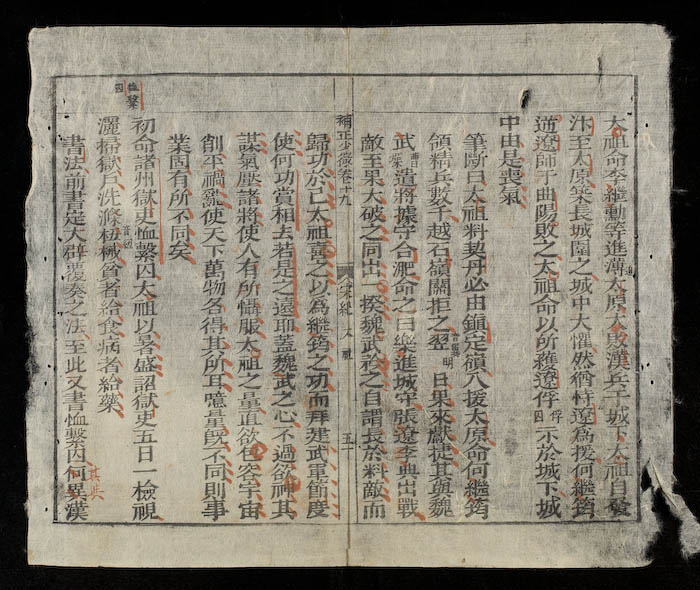 太祖命李繼勳等進薄太原太敗漢兵于城下太祖自發
汴至太原築長城圍之城中大懼然猶恃遼爲援何繼筠
逆遼師于曲陽敗之太祖命以所獲遼俘俘囚示於城下城
中由是喪氣
筆斷曰太祖料契丹必由鎮定嶺入援太原命何繼筠
領精兵數千越石嶺關拒之翌明日果來獻捷其與魏
武曹操遣將據守合肥命之曰樂進城守張遼李典出戰
敵至果大破之同出一揆魏武於之自謂長於料敵而
補正少微卷十九
太祖
五一
歸功於己太祖喜之以爲繼筠之功而拜建武軍節度
使何功賞相去若是之遠耶蓋魏武之心不過欲神其
謀氣壓諸將使人有所懾服太祖之量直欲包容宇宙
削平禍亂使天下萬物各得其所耳噫量旣不同則事
業固有所不同矣
恤繫
囚
初命諸州獄吏恤繫囚太祖以暑盛詔獄吏五日一檢視
灑掃獄戶洗滌杻械貧者給食病者給藥
書法前書定大辟覆奏之法至此又書恤繫囚何異漢